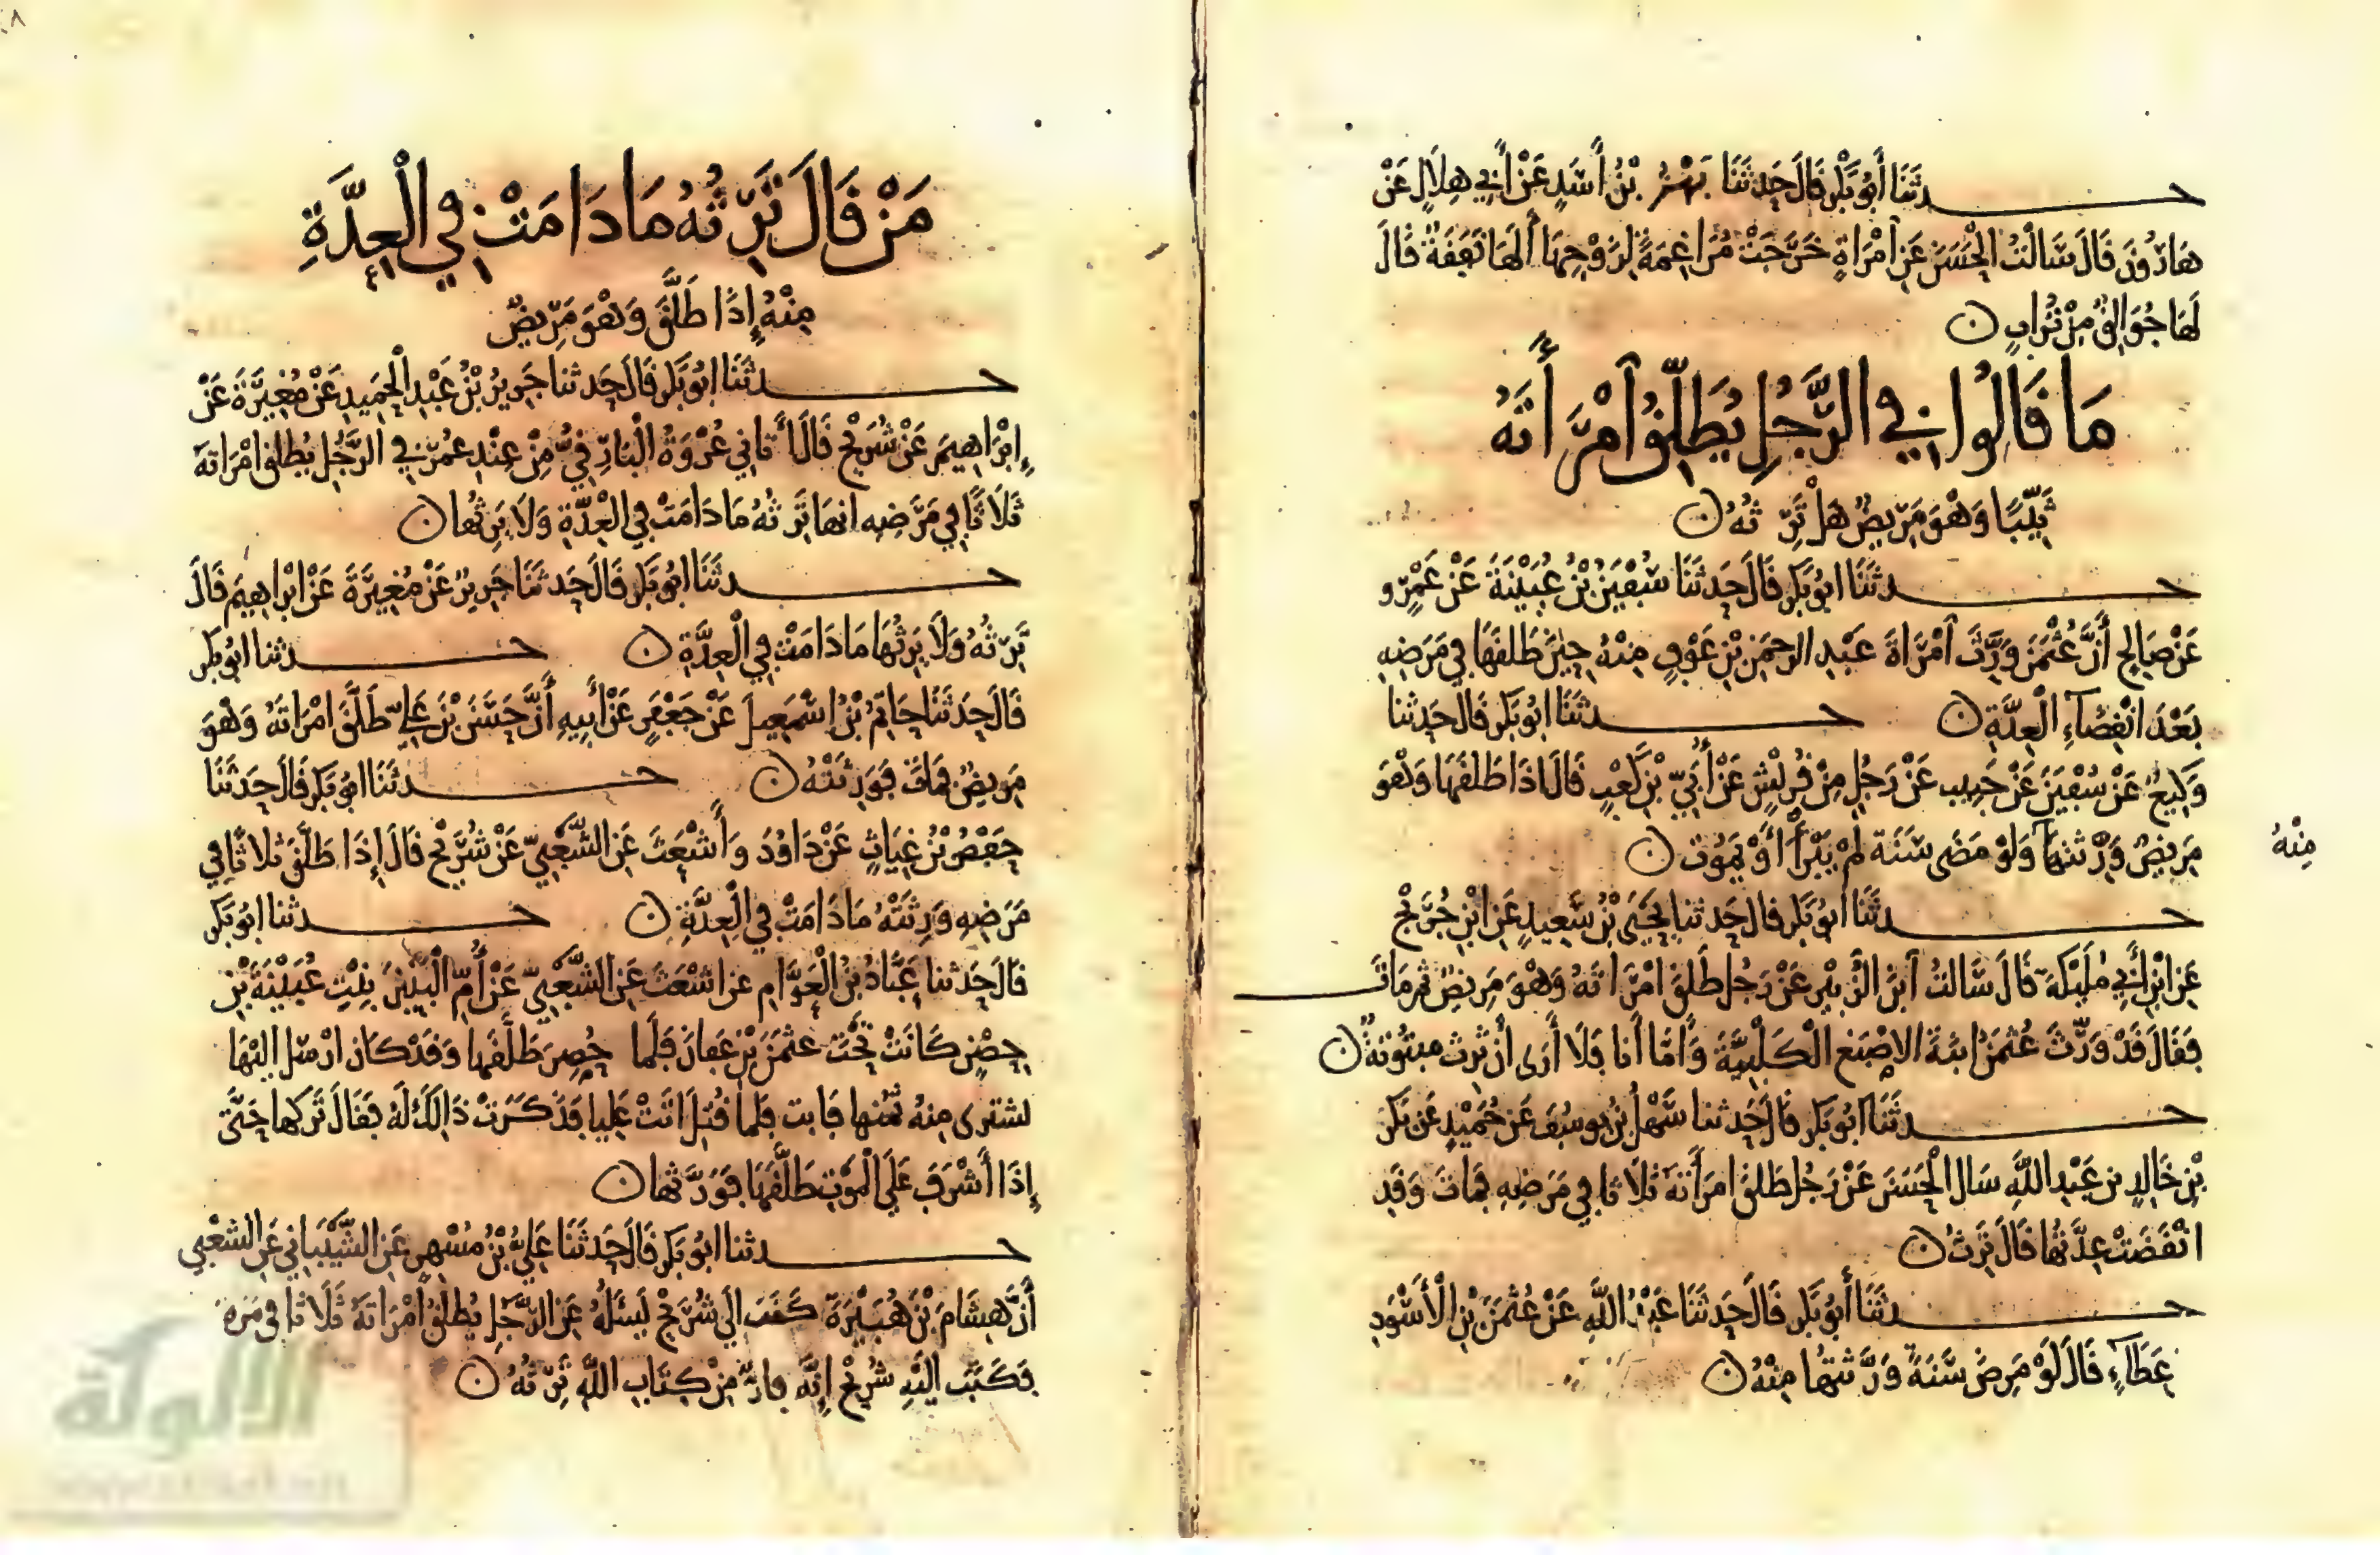 حدثنا أبو بكر قال حدثنا بهز بن أسد عن أبي هلال عن
هارون قال سالت الحسن عن امراة خرجت مراغمة لزوجها ألها نفقة قال
لها جوالق من تراب ن
ما قالوا في الرجل يطلق امرأته
ثيبا وهو مريض هل ترثه ن
حدثنا ابو بكر قال حدثنا سفين بن عيينة عن عمرو
عن صالح أن عثمن ورث امراة عبد الرحمن بن عوف منه حين طلقها في مرضه
بعد انقضاء العدة ن حدثنا ابو بكر قال حدثنا
وكيع عن سفين عن حبيب عن رجل من قريش عن أبي بن كعب قال اذا طلقها وهو
مريض ورثتها منه ولو مضى سنة لم يبرأ أو يموت ن
حدثنا ابو بكر قال حدثنا يحيى بن سعيد عن ابن جريج
عن ابن أبي مليكة قال سالت ابن الزبير عن رجل طلق امراته وهو مريض ثم مات
فقال قد ورث عثمن ابنة الاصبغ الكلبية وأما أنا فلا أرى أن ترث مبتوتة ن
حدثنا ابو بكر قال حدثنا سهل بن يوسف عن حميد عن بكر
بن خالد بن عبد الله سال الحسن عن رجل طلق امرأته ثلاثا في مرضه فمات وقد
انقضت عدتها قال ترث ن
حدثنا أبو بكر قال حدثنا عبد الله عن عثمن بن الأسود
عطاء قال لو مرض سنة ورثتها منه ن
من قال ترثه ما دامت في العدة
منه إذا طلق وهو مريض
حدثنا ابو بكر قال حدثنا جرير بن عبد الحميد عن مغيرة عن
إبراهيم عن شريح قال أتاني عروة البارقي من عند عمر في الرجل يطلق امراته
ثلاثا في مرضه انها ترثه ما دامت في العدة ولا يرثها ن
حدثنا ابو بكر قال حدثنا جرير عن مغيرة عن ابراهيم قال
ترثه ولا يرثها ما دامت في العدة ن حدثنا ابو بكر
قال حدثنا حاتم بن اسمعيل عن جعفر عن أبيه أن حسن بن علي طلق امراته وهو
مريض فمات فورثته ن حدثنا ابو بكر قال حدثنا
حفص بن غياث عن داود وأشعث عن الشعبي عن شريح قال إذا طلق ثلاثا في
مرضه ورثته ما دامت في العدة ن حدثنا ابو بكر
قال حدثنا عباد بن العوام عن اشعث عن الشعبي عن أم البنين بنت عيينة بن
حصن كانت تحت عثمن بن عفان فلما حصر طلقها وقد كان ارسل اليها
لتشترى منه ثمنها فابت فلما قتل اتت عليا فذكرت ذالك له فقال تركها حتى
إذا أشرف على الموت طلقها فورثها ن
حدثنا ابو بكر قال حدثنا علي بن مسهر عن الشيباني عن الشعبي
أن هشام بن هبيرة كتب الى شريح ليسئله عن الرجل يطلق امراته ثلاثا في مرضه
فكتب اليه شريح إنه فار من كتاب الله ترثه ن
الألوكة